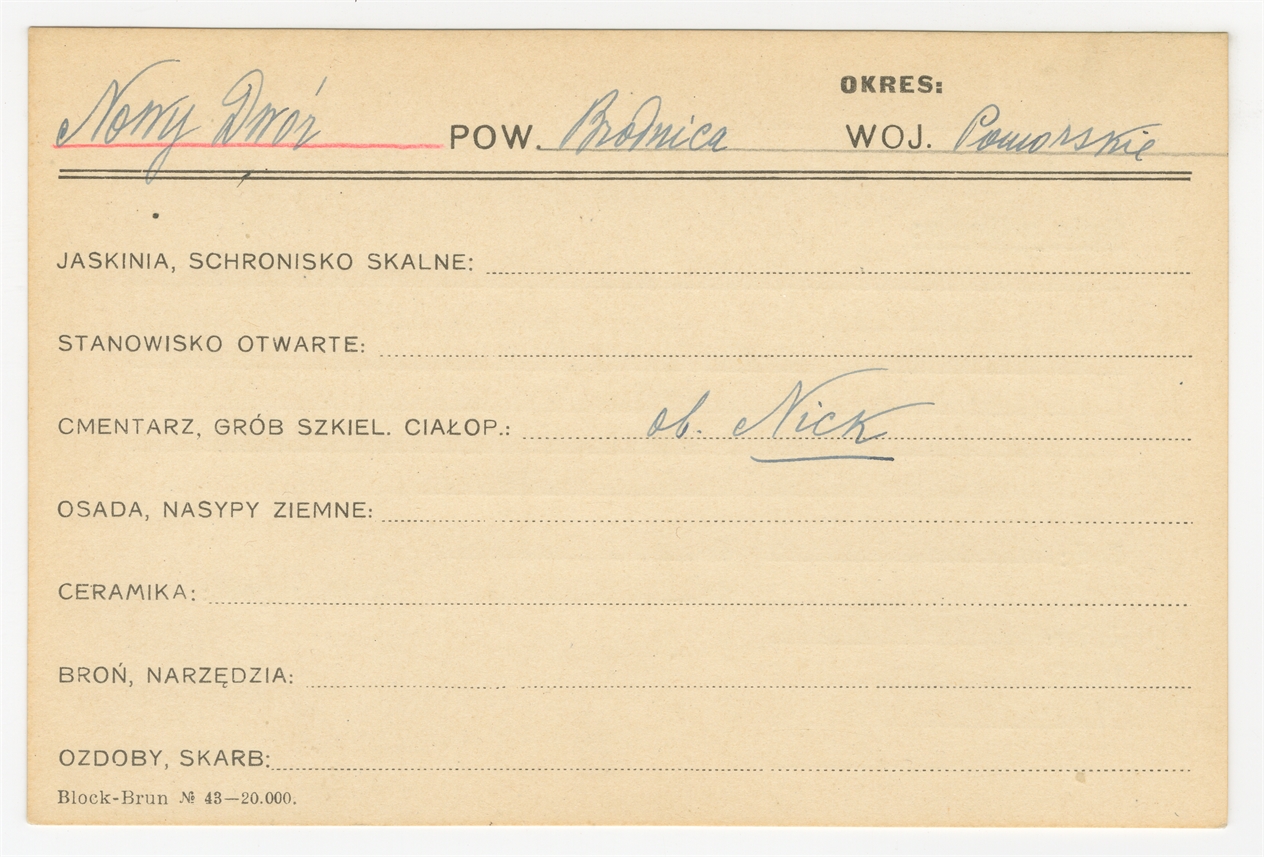 OKRES:
Nowy Dwór POW. Brodnica WOJ. Pomorskie
JASKINIA, SCHRONISKO SKALNE:
STANOWISKO OTWARTE:
CMENTARZ, GRÓB SZKIEL. CIAŁOP.: ob. Nick
OSADA, NASYPY ZIEMNE:
CERAMIKA:
BROŃ, NARZĘDZIA:
OZDOBY, SKARB:
Block-Brun № 43—20.000.